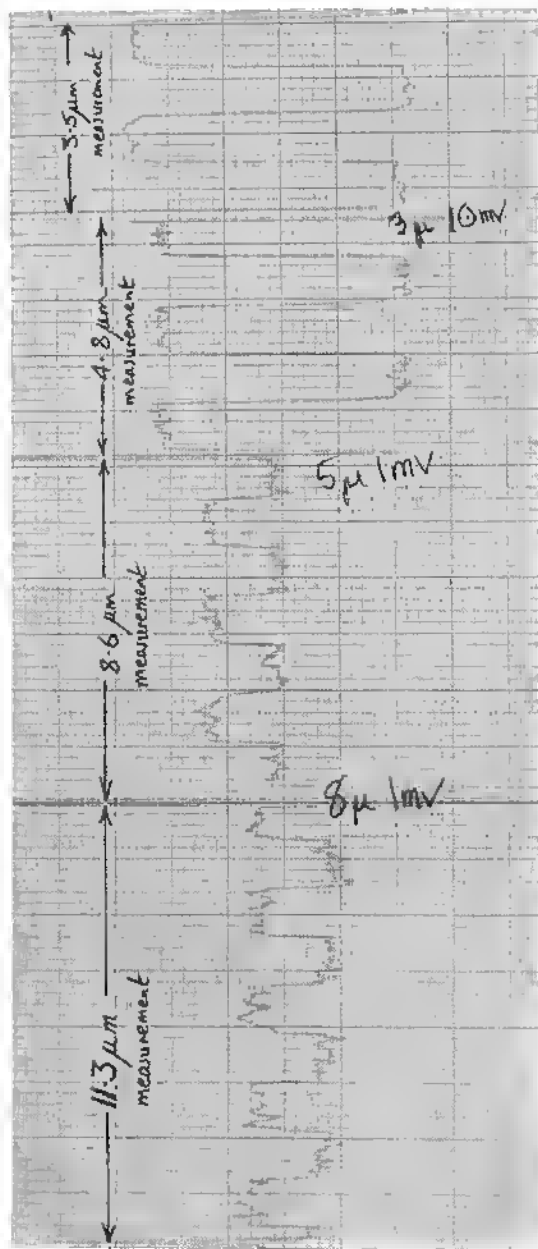 3.5 µm
measurement
3 µ 10 mv
4.8 µm
measurement
5 µ 1 mv
8.6 µm
measurement
8 µ 1 mv
11.3 µm
measurement